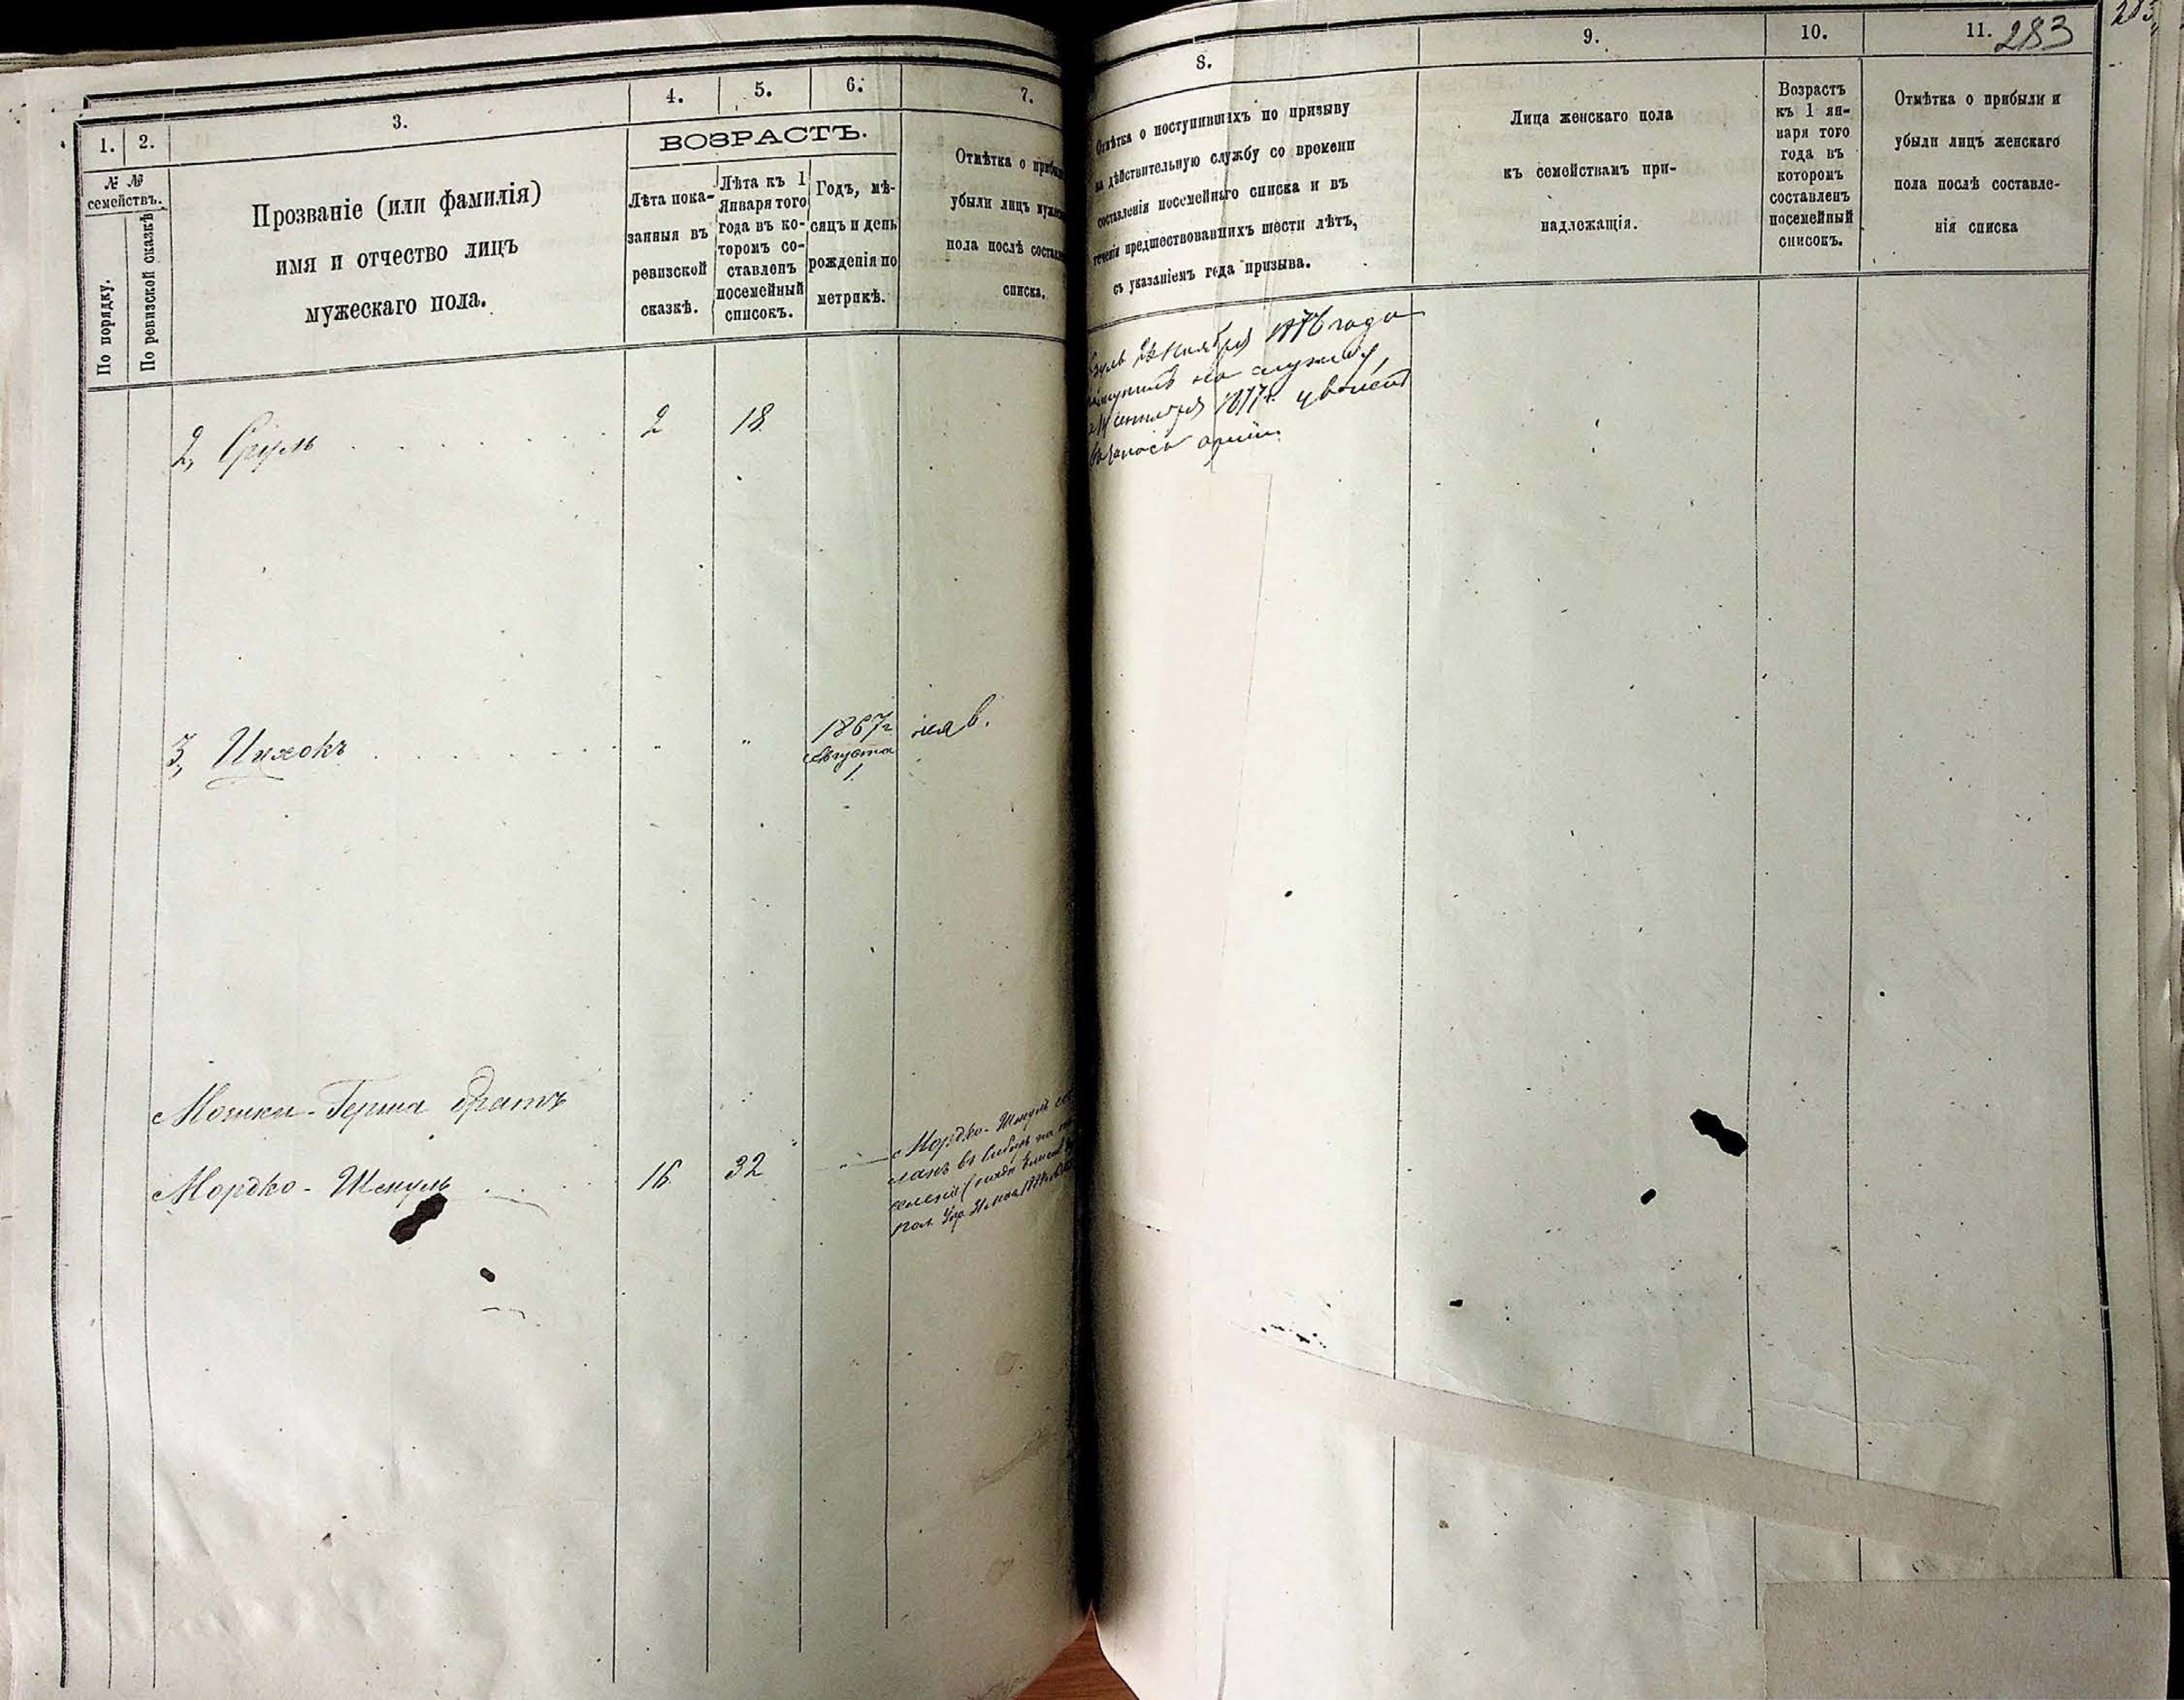 1.
2.
3.
4.
5.
6.
7.
№ №
семействъ.
По порядку.
По ревизской сказкѣ
Прозваніе (или фамилія)
имя и отчество лицъ
мужескаго пола.
ВОЗРАСТЪ.
Лѣта пока-
занныя въ
ревизской
сказкѣ.
Лѣта къ 1
Января того
года въ ко-
торомъ со-
ставленъ
посемейный
списокъ.
Годъ, мѣ-
сяцъ и день
рожденія по
метрикѣ.
Отмѣтка о
убыли лицъ
пола послѣ
списка.
2, Сруль
2
18
3, Ицхокъ
"
"
1867 г.
Августа
1
Мошки-Герша братъ
Мордко-Шмуль
16
32
"
Мордко-Шмуль
8.
9.
10.
11.
283
Отмѣтка о поступившихъ по призыву
на дѣйствительную службу со времени
составленія посемейнаго списка и въ
теченіи предшествовавшихъ шести лѣтъ,
съ указаніемъ года призыва.
Лица женскаго пола
къ семействамъ при-
надлежащія.
Возрастъ
къ 1 ян-
варя того
года въ
которомъ
составленъ
посемейный
списокъ.
Отмѣтка о прибыли и
убыли лицъ женскаго
пола послѣ составле-
нія списка
1876 года
на службу,
1877 г.
арміи.